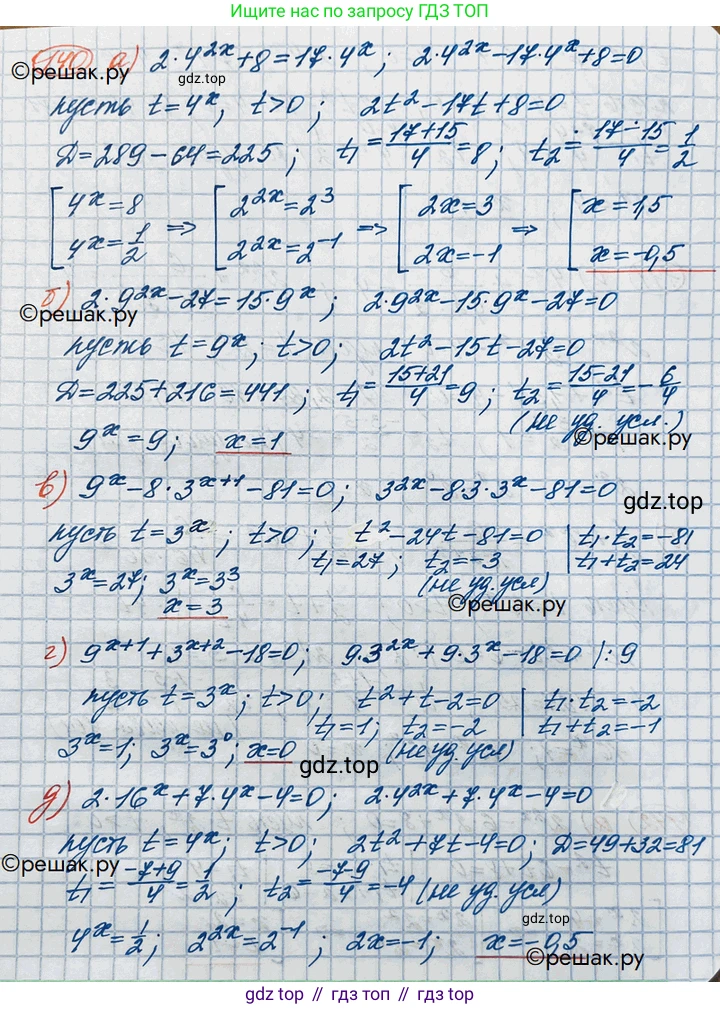 Больше решений по запросу ГДЗ ТОП
140 а) 2·4^{2x}+8=17·4^x; 2·4^{2x}-17·4^x+8=0
©reшак.ру
gdz.top
пусть t=4^x, t>0; 2t²-17t+8=0
D=289-64=225; t₁=\frac{17+15}{4}=8; t₂=\frac{17-15}{4}=\frac{1}{2}
[4^x=8 4^x=\frac{1}{2} ⇒ [2^{2x}=2^3 2^{2x}=2^{-1} ⇒ [2x=3 2x=-1 ⇒ [x=1,5 x=-0,5
б) 2·9^{2x}-27=15·9^x; 2·9^{2x}-15·9^x-27=0
©reшак.ру
пусть t=9^x; t>0; 2t²-15t-27=0
D=225+216=441; t₁=\frac{15+21}{4}=9; t₂=\frac{15-21}{4}=-\frac{6}{4}
(не уд. усл.)
9^x=9; x=1
©reшак.ру
в) 9^x-8·3^{x+1}-81=0; 3^{2x}-8·3·3^x-81=0
gdz.top
пусть t=3^x; t>0; t²-24t-81=0 | t₁·t₂=-81
t₁=27; t₂=-3 | t₁+t₂=24
3^x=27; 3^x=3^3 (не уд. усл)
x=3
©reшак.ру
г) 9^{x+1}+3^{x+2}-18=0; 9·3^{2x}+9·3^x-18=0 |:9
пусть t=3^x; t>0; t²+t-2=0 | t₁·t₂=-2
t₁=1; t₂=-2 | t₁+t₂=-1
3^x=1; 3^x=3^0; x=0 (не уд. усл)
gdz.top
д) 2·16^x+7·4^x-4=0; 2·4^{2x}+7·4^x-4=0
пусть t=4^x; t>0; 2t²+7t-4=0; D=49+32=81
©reшак.ру
t₁=\frac{-7+9}{4}=\frac{1}{2}; t₂=\frac{-7-9}{4}=-4 (не уд. усл)
gdz.top
4^x=\frac{1}{2}; 2^{2x}=2^{-1}; 2x=-1; x=-0,5
©reшак.ру
gdz top // гдз топ // gdz.top